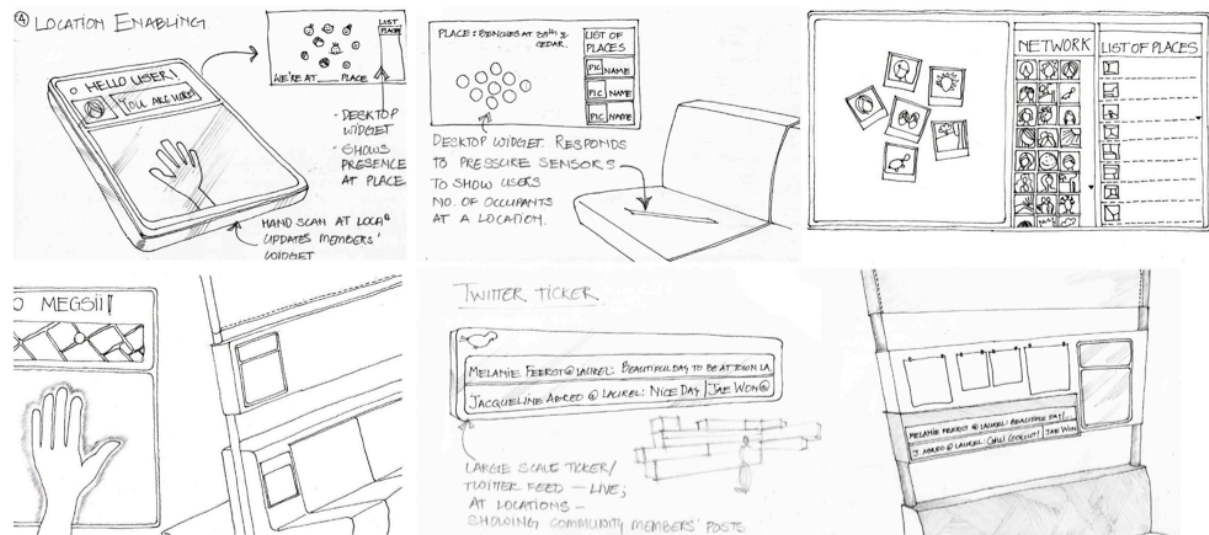 ④ LOCATION ENABLING
HELLO USER!
YOU ARE HERE
LIST
PLACES
WE'RE AT ___ PLACE
- DESKTOP
WIDGET
- SHOWS
PRESENCE
AT PLACE
HAND SCAN AT
UPDATES MEMBERS'
WIDGET
PLACE: BENCHES AT 38th &
CEDAR.
LIST OF
PLACES
PIC NAME
PIC NAME
PIC NAME
DESKTOP WIDGET. RESPONDS
TO PRESSURE SENSORS
TO SHOW USERS
NO. OF OCCUPANTS
AT A LOCATION.
NETWORK
LIST OF PLACES
MEGSII!
TWITTER TICKER
MELANIE @ LAUREL: BEAUTIFUL DAY TO BE AT LA
JACQUELINE ABREO @ LAUREL: NICE DAY JAE WON @
LARGE SCALE TICKER/
TWITTER FEED — LIVE;
AT LOCATIONS —
SHOWING COMMUNITY MEMBERS' POSTS
MELANIE @ LAUREL: BEAUTIFUL DAY!
J. ABREO @ LAUREL: CHILI COOKOUT! JAE WON